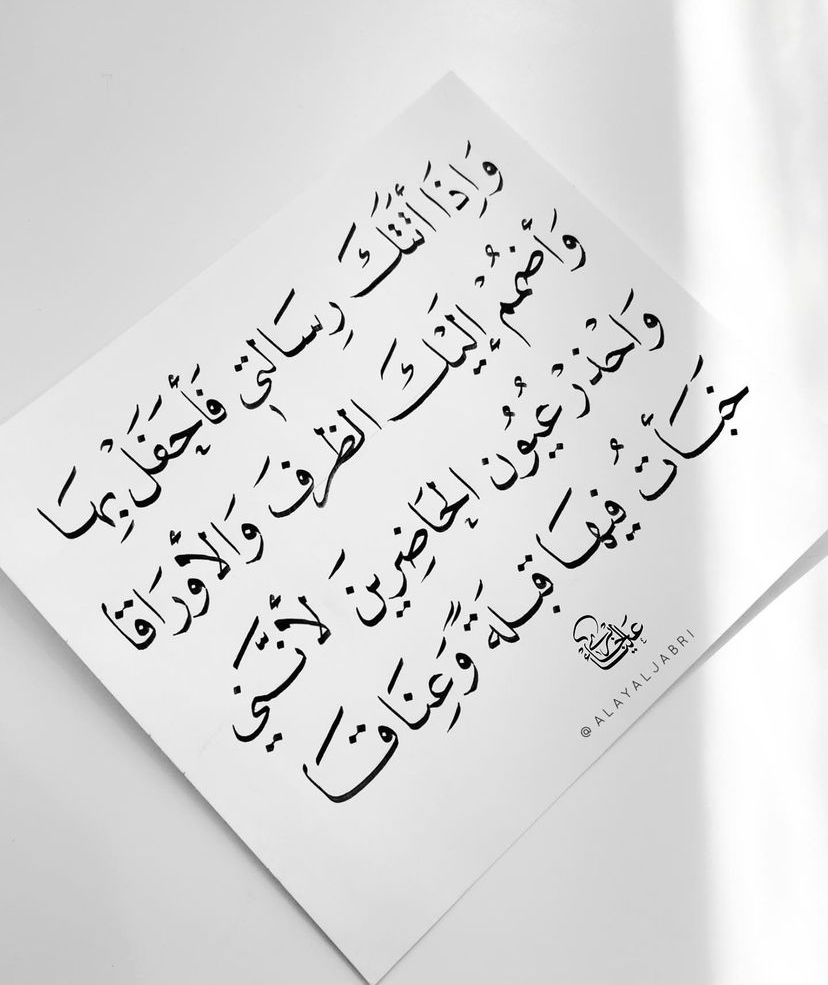 وَإِذَا أَتَتَكَ رِسَالَتِي فَأَحْفَلْ بِهَا
وَأَضْمُمْ إِلَيْكَ الظَّرفَ وَالأَورَاقَا
وَاحْذَرْ عُيُونَ الحَاضِرِينَ لأَنَّنِي
خَبَّأتُ فِيهَا قبلَةً وَعِنَاقَا
علياء الجابري
@ALAYALJABRI